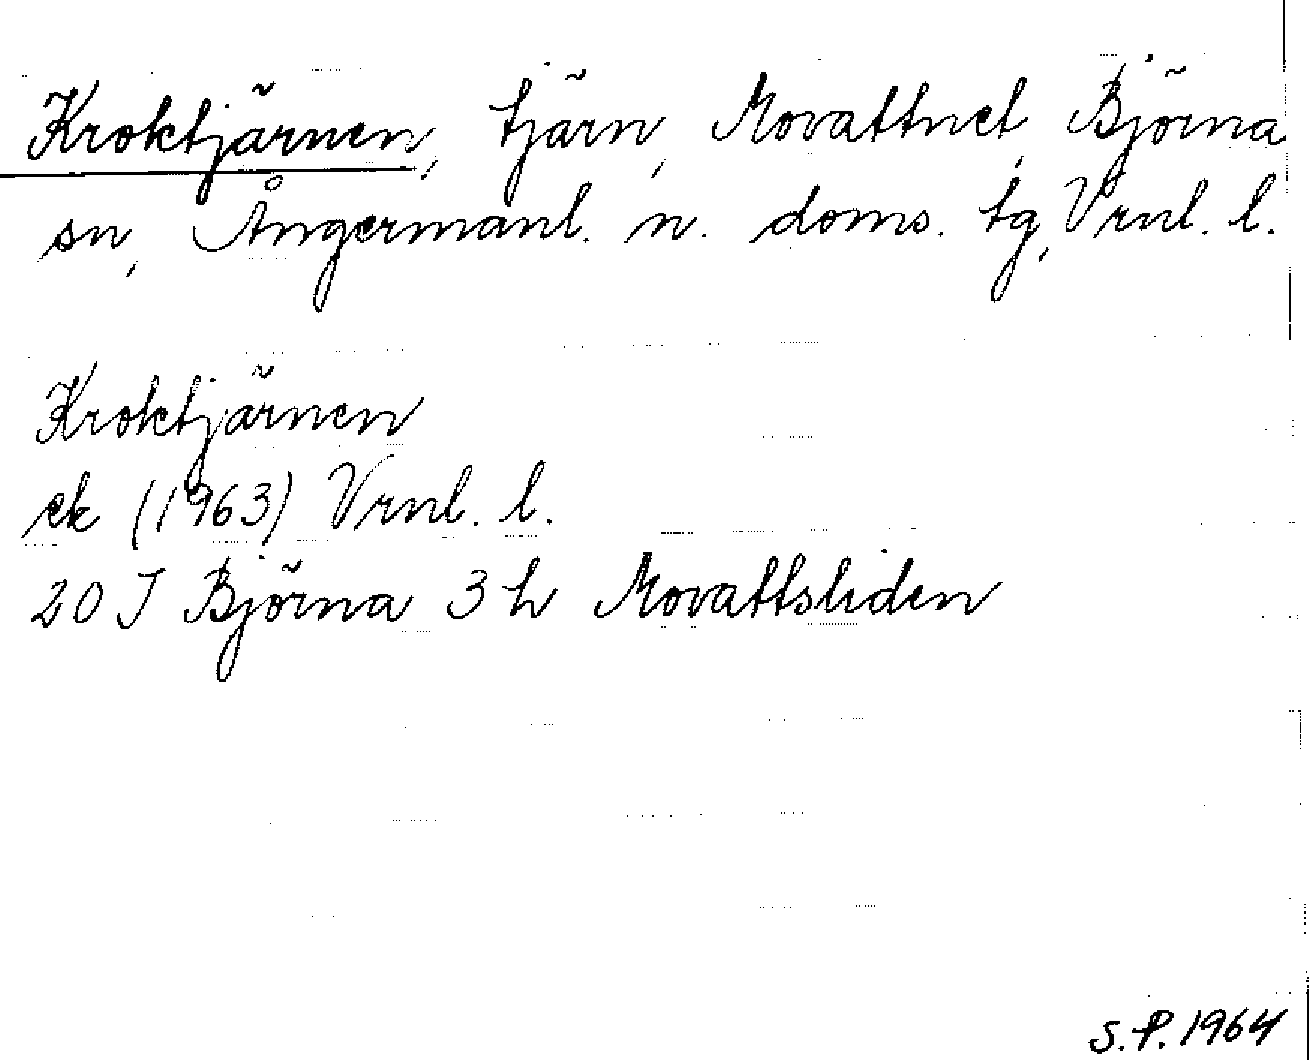 Kroktjärnen, tjärn, Movattnet, Björna
sn, Ångermanl. n. doms. tg, Vrnl. l.
Kroktjärnen
ek (1963) Vrnl. l.
20 J Björna 3 h Movattsliden
S.P. 1964